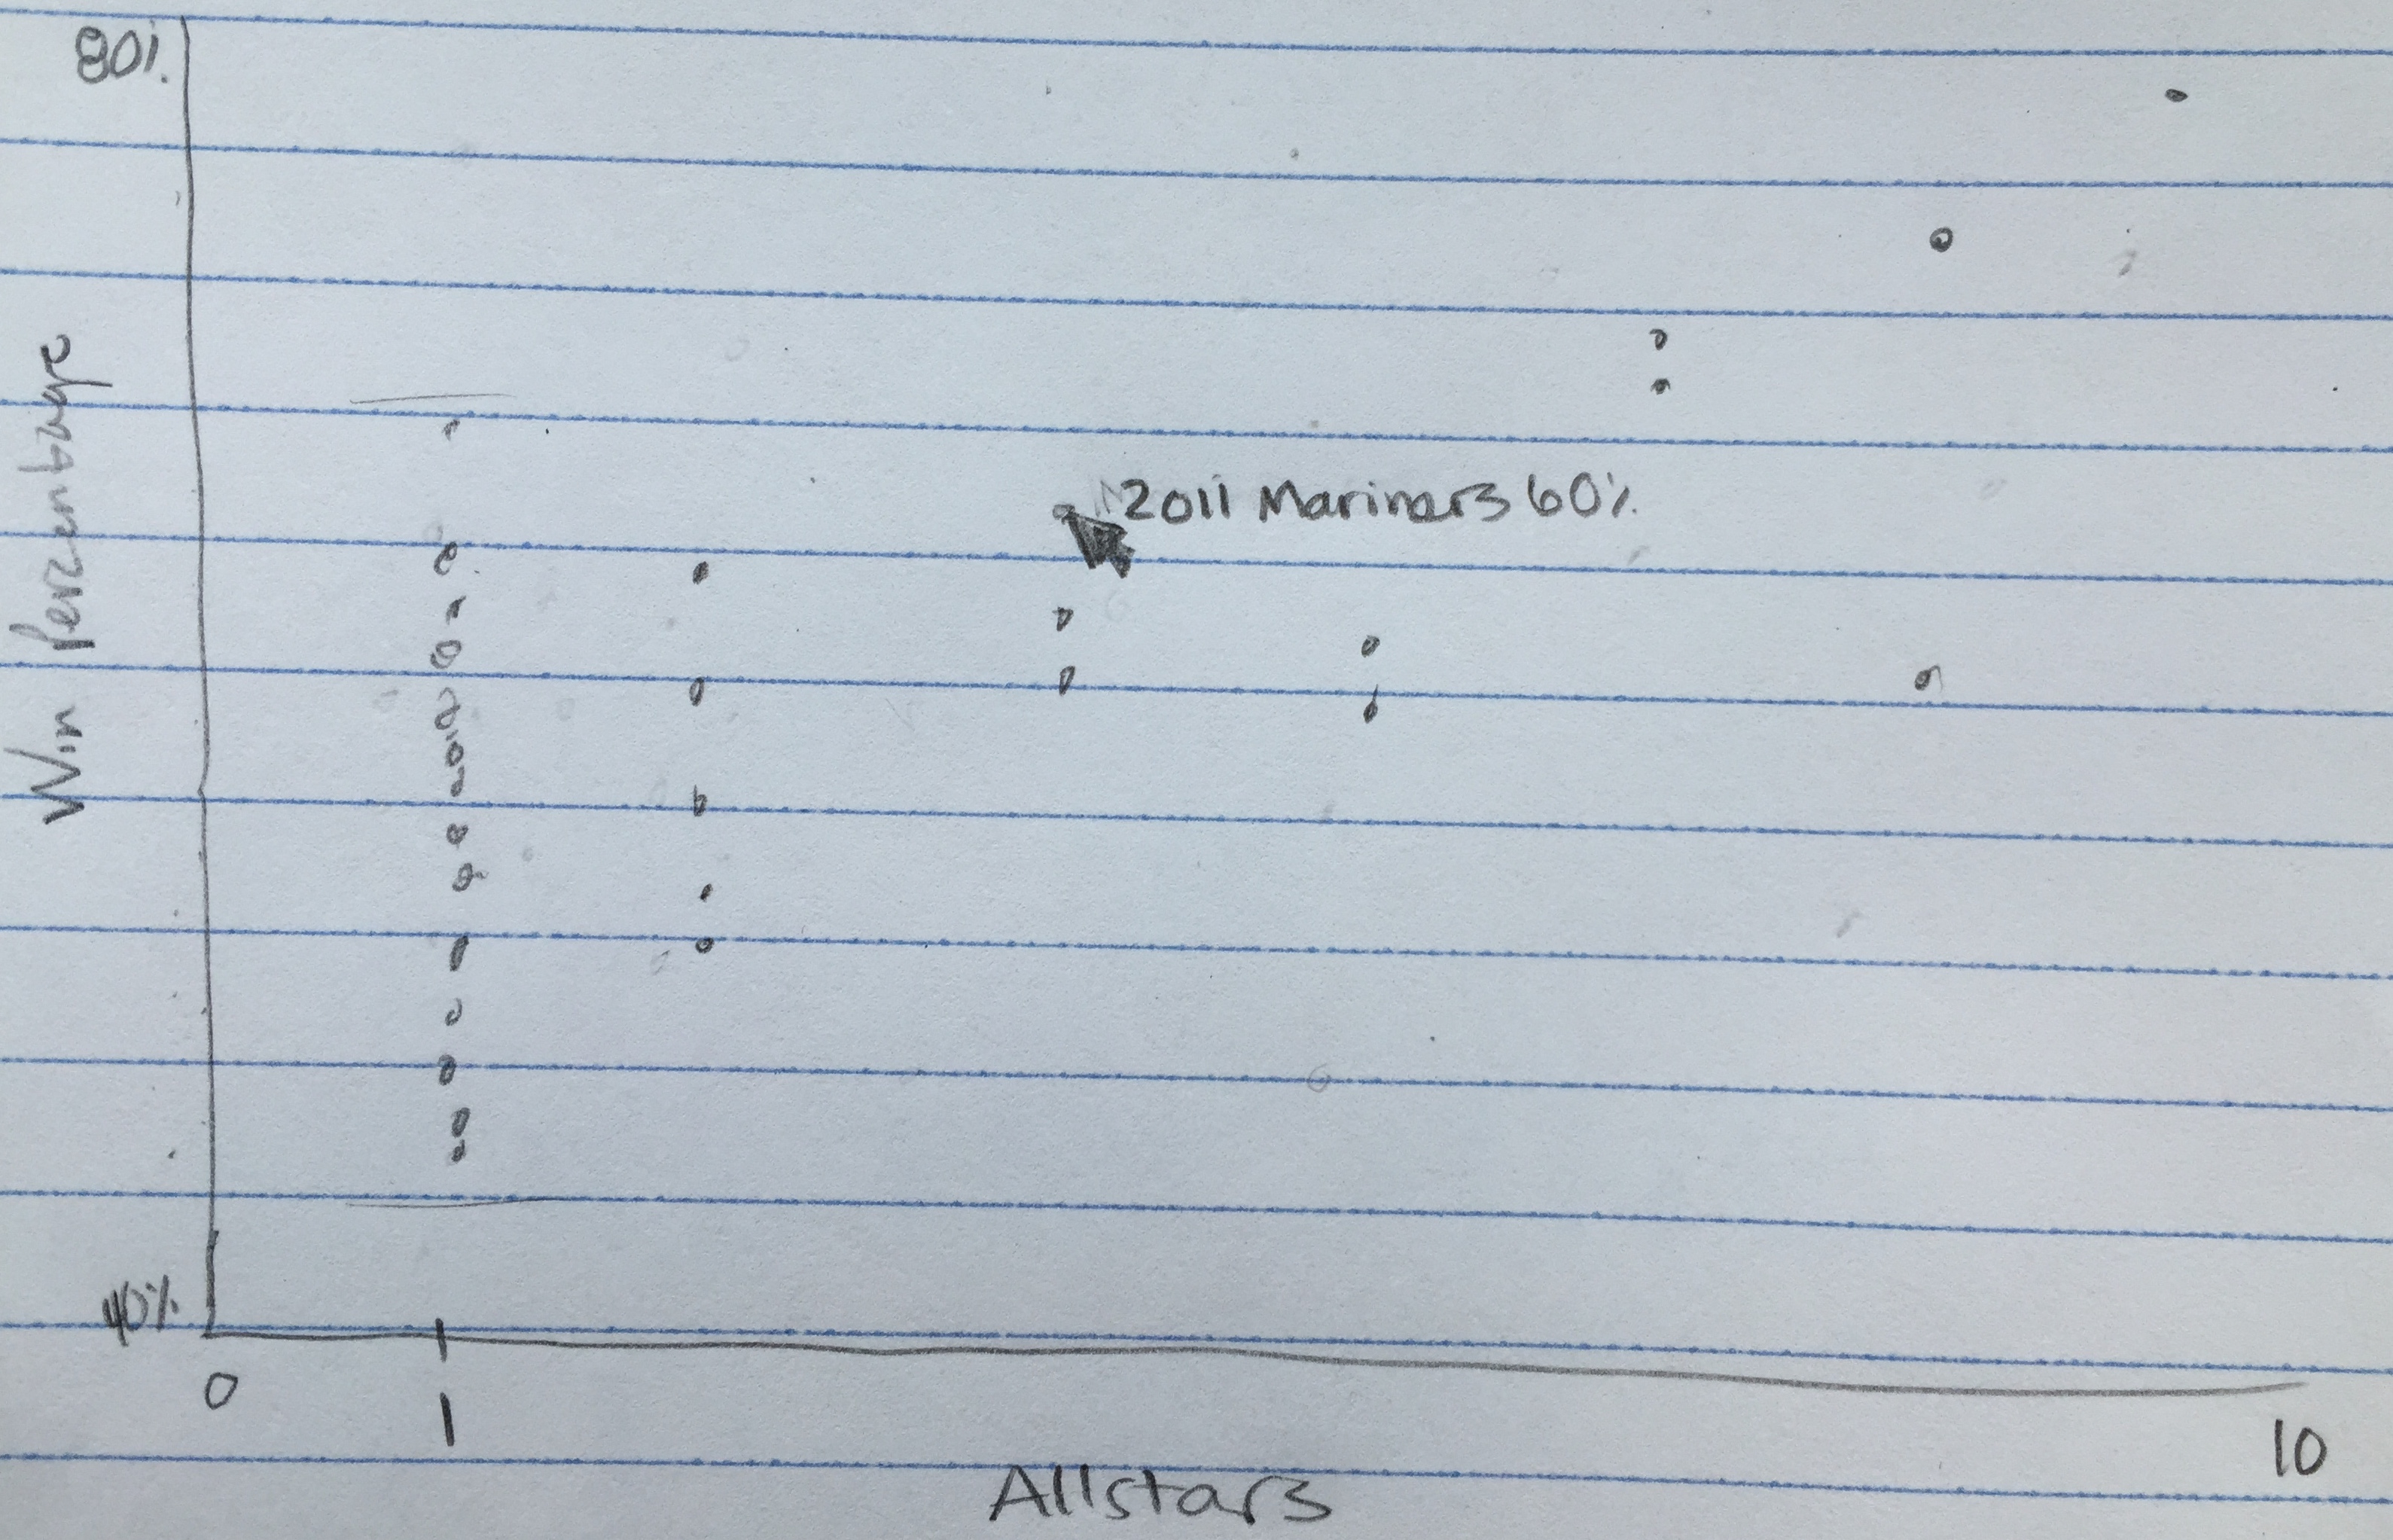 80%
Win Percentage
2011 Mariners 60%
40%
0
1
10
Allstars